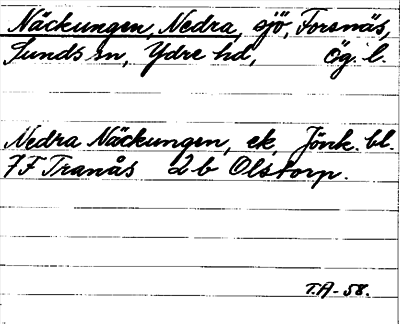 Näckungen, Nedra, sjö, Forsnäs,
Sunds sn, Ydre hd, Ög. l.
Nedra Näckungen, ek. Jönk. bl.
7F Tranås 2b Olstorp.
T.A-58.